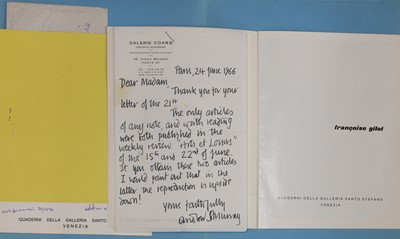 GALERIE COARD
PARIS 8e
Paris, 24 June 1966
Dear Madam,
Thank you for your
letter of the 21st
The only articles
of any note, and worth reading
were both published in the
weekly review "Arts et Loisirs"
of the 15th and 22nd of June.
If you obtain these two articles
I would point out that in the
latter the reproduction is upside
down!
Yours faithfully
QUADERNI DELLA GALLERIA SANTO
VENEZIA
françoise gilot
QUADERNI DELLA GALLERIA SANTO STEFANO
VENEZIA